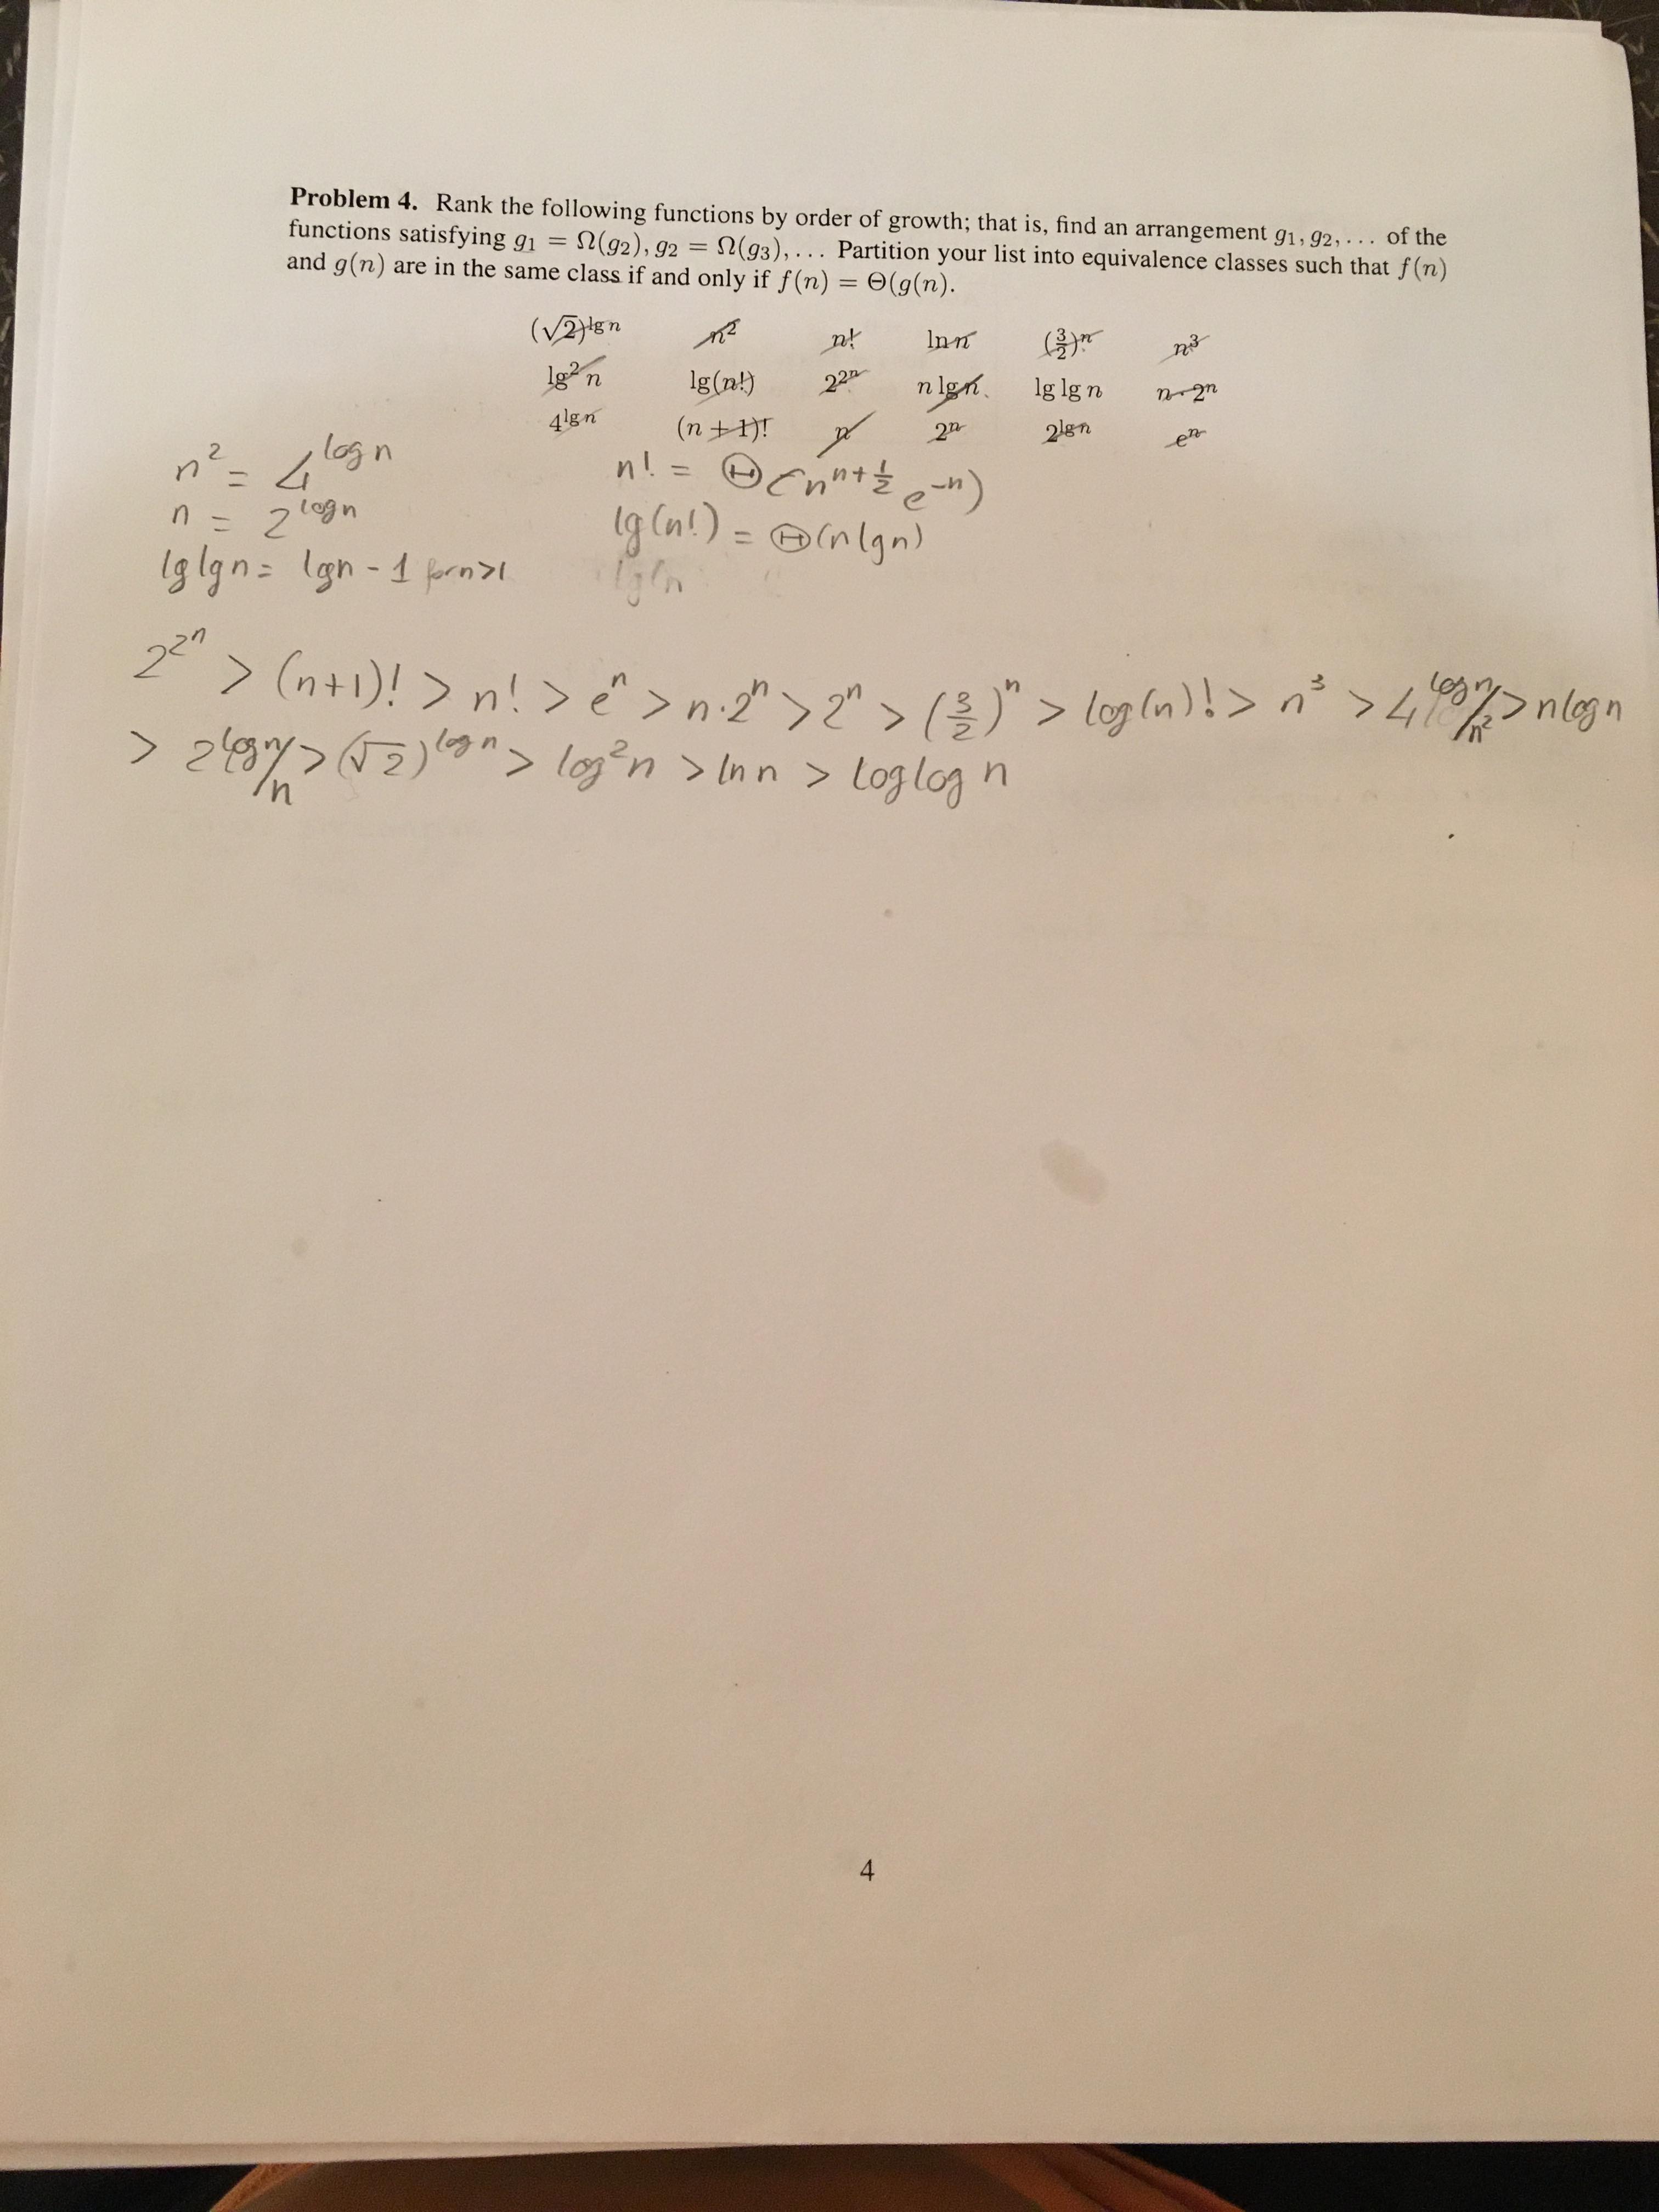 Problem 4. Rank the following functions by order of growth; that is, find an arrangement g₁, g₂, ... of the
functions satisfying g₁ = Ω(g₂), g₂ = Ω(g₃), ... Partition your list into equivalence classes such that f(n)
and g(n) are in the same class if and only if f(n) = Θ(g(n).
(√2)^lg n n² n! ln n (3/2)^n n³
lg² n lg(n!) 2^2^n n lg n lg lg n n·2^n
4^lg n (n + 1)! n 2^n 2^lg n e^n
n² = 4^log n
n = 2^log n
lg lg n = lg n - 1 for n>1
n! = Θ(n^(n+1/2) e^-n)
lg(n!) = Θ(n lg n)
lg(n
2^2^n > (n+1)! > n! > e^n > n·2^n > 2^n > (3/2)^n > log(n)! > n³ > 4^log n / n² > n log n
> 2^log n / n > (√2)^log n > log² n > ln n > log log n
4